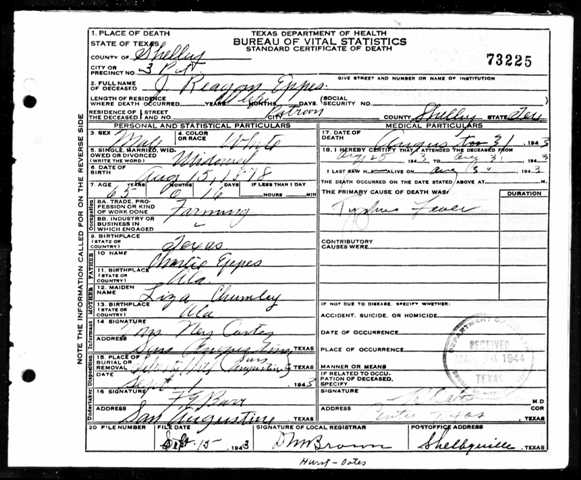 1. PLACE OF DEATH
STATE OF TEXAS
TEXAS DEPARTMENT OF HEALTH
BUREAU OF VITAL STATISTICS
STANDARD CERTIFICATE OF DEATH
73225
COUNTY OF Shelby
CITY OR PRECINCT NO. 3
GIVE STREET AND NUMBER OR NAME OF INSTITUTION
2. FULL NAME OF DECEASED J Reagon Eppes
LENGTH OF RESIDENCE WHERE DEATH OCCURRED YEARS MONTHS DAYS SOCIAL SECURITY NO.
RESIDENCE OF THE DECEASED STREET AND NO. CITY Patroon COUNTY Shelby STATE Tex
PERSONAL AND STATISTICAL PARTICULARS
MEDICAL PARTICULARS
3. SEX Male 4. COLOR OR RACE White
5. SINGLE, MARRIED, WIDOWED OR DIVORCED (WRITE THE WORD) Widowed
6. DATE OF BIRTH Aug 15, 1878
7. AGE 65 YEARS MONTHS 16 DAYS IF LESS THAN 1 DAY HOURS MIN
8A. TRADE, PROFESSION OR KIND OF WORK DONE Farming
8B. INDUSTRY OR BUSINESS IN WHICH ENGAGED "
9. BIRTHPLACE (STATE OR COUNTRY) Texas
10 NAME Charlie Eppes
11. BIRTHPLACE (STATE OR COUNTRY) Ala
12. MAIDEN NAME Liza Chumley
13. BIRTHPLACE (STATE OR COUNTRY) Ala
14 SIGNATURE Mrs Carter
ADDRESS San Augustine TEXAS
15. PLACE OF BURIAL OR REMOVAL San Augustine TEXAS
DATE Sept 1 1943
16 SIGNATURE F G Barr
ADDRESS San Augustine TEXAS
17. DATE OF DEATH August 31 1943
18. I HEREBY CERTIFY THAT I ATTENDED THE DECEASED FROM Aug 25 1943 TO Aug 31 1943
I LAST SAW H ALIVE ON Aug 1943
THE DEATH OCCURRED ON THE DATE STATED ABOVE AT M.
THE PRIMARY CAUSE OF DEATH WAS: DURATION
Typhus Fever
CONTRIBUTORY CAUSES WERE:
IF NOT DUE TO DISEASE, SPECIFY WHETHER:
ACCIDENT, SUICIDE, OR HOMICIDE
DATE OF OCCURRENCE
PLACE OF OCCURRENCE
MANNER OR MEANS
IF RELATED TO OCCUPATION OF DECEASED, SPECIFY
SIGNATURE M.D.
ADDRESS TEXAS
RECEIVED
1944
TEXAS
20 FILE NUMBER
FILE DATE Sept 15 1943
SIGNATURE OF LOCAL REGISTRAR D M Brown
POSTOFFICE ADDRESS Shelbyville, TEXAS
NOTE THE INFORMATION CALLED FOR ON THE REVERSE SIDE
Occupation
FATHER
MOTHER
Informant
Undertaker Disposition
Hurst-Oates